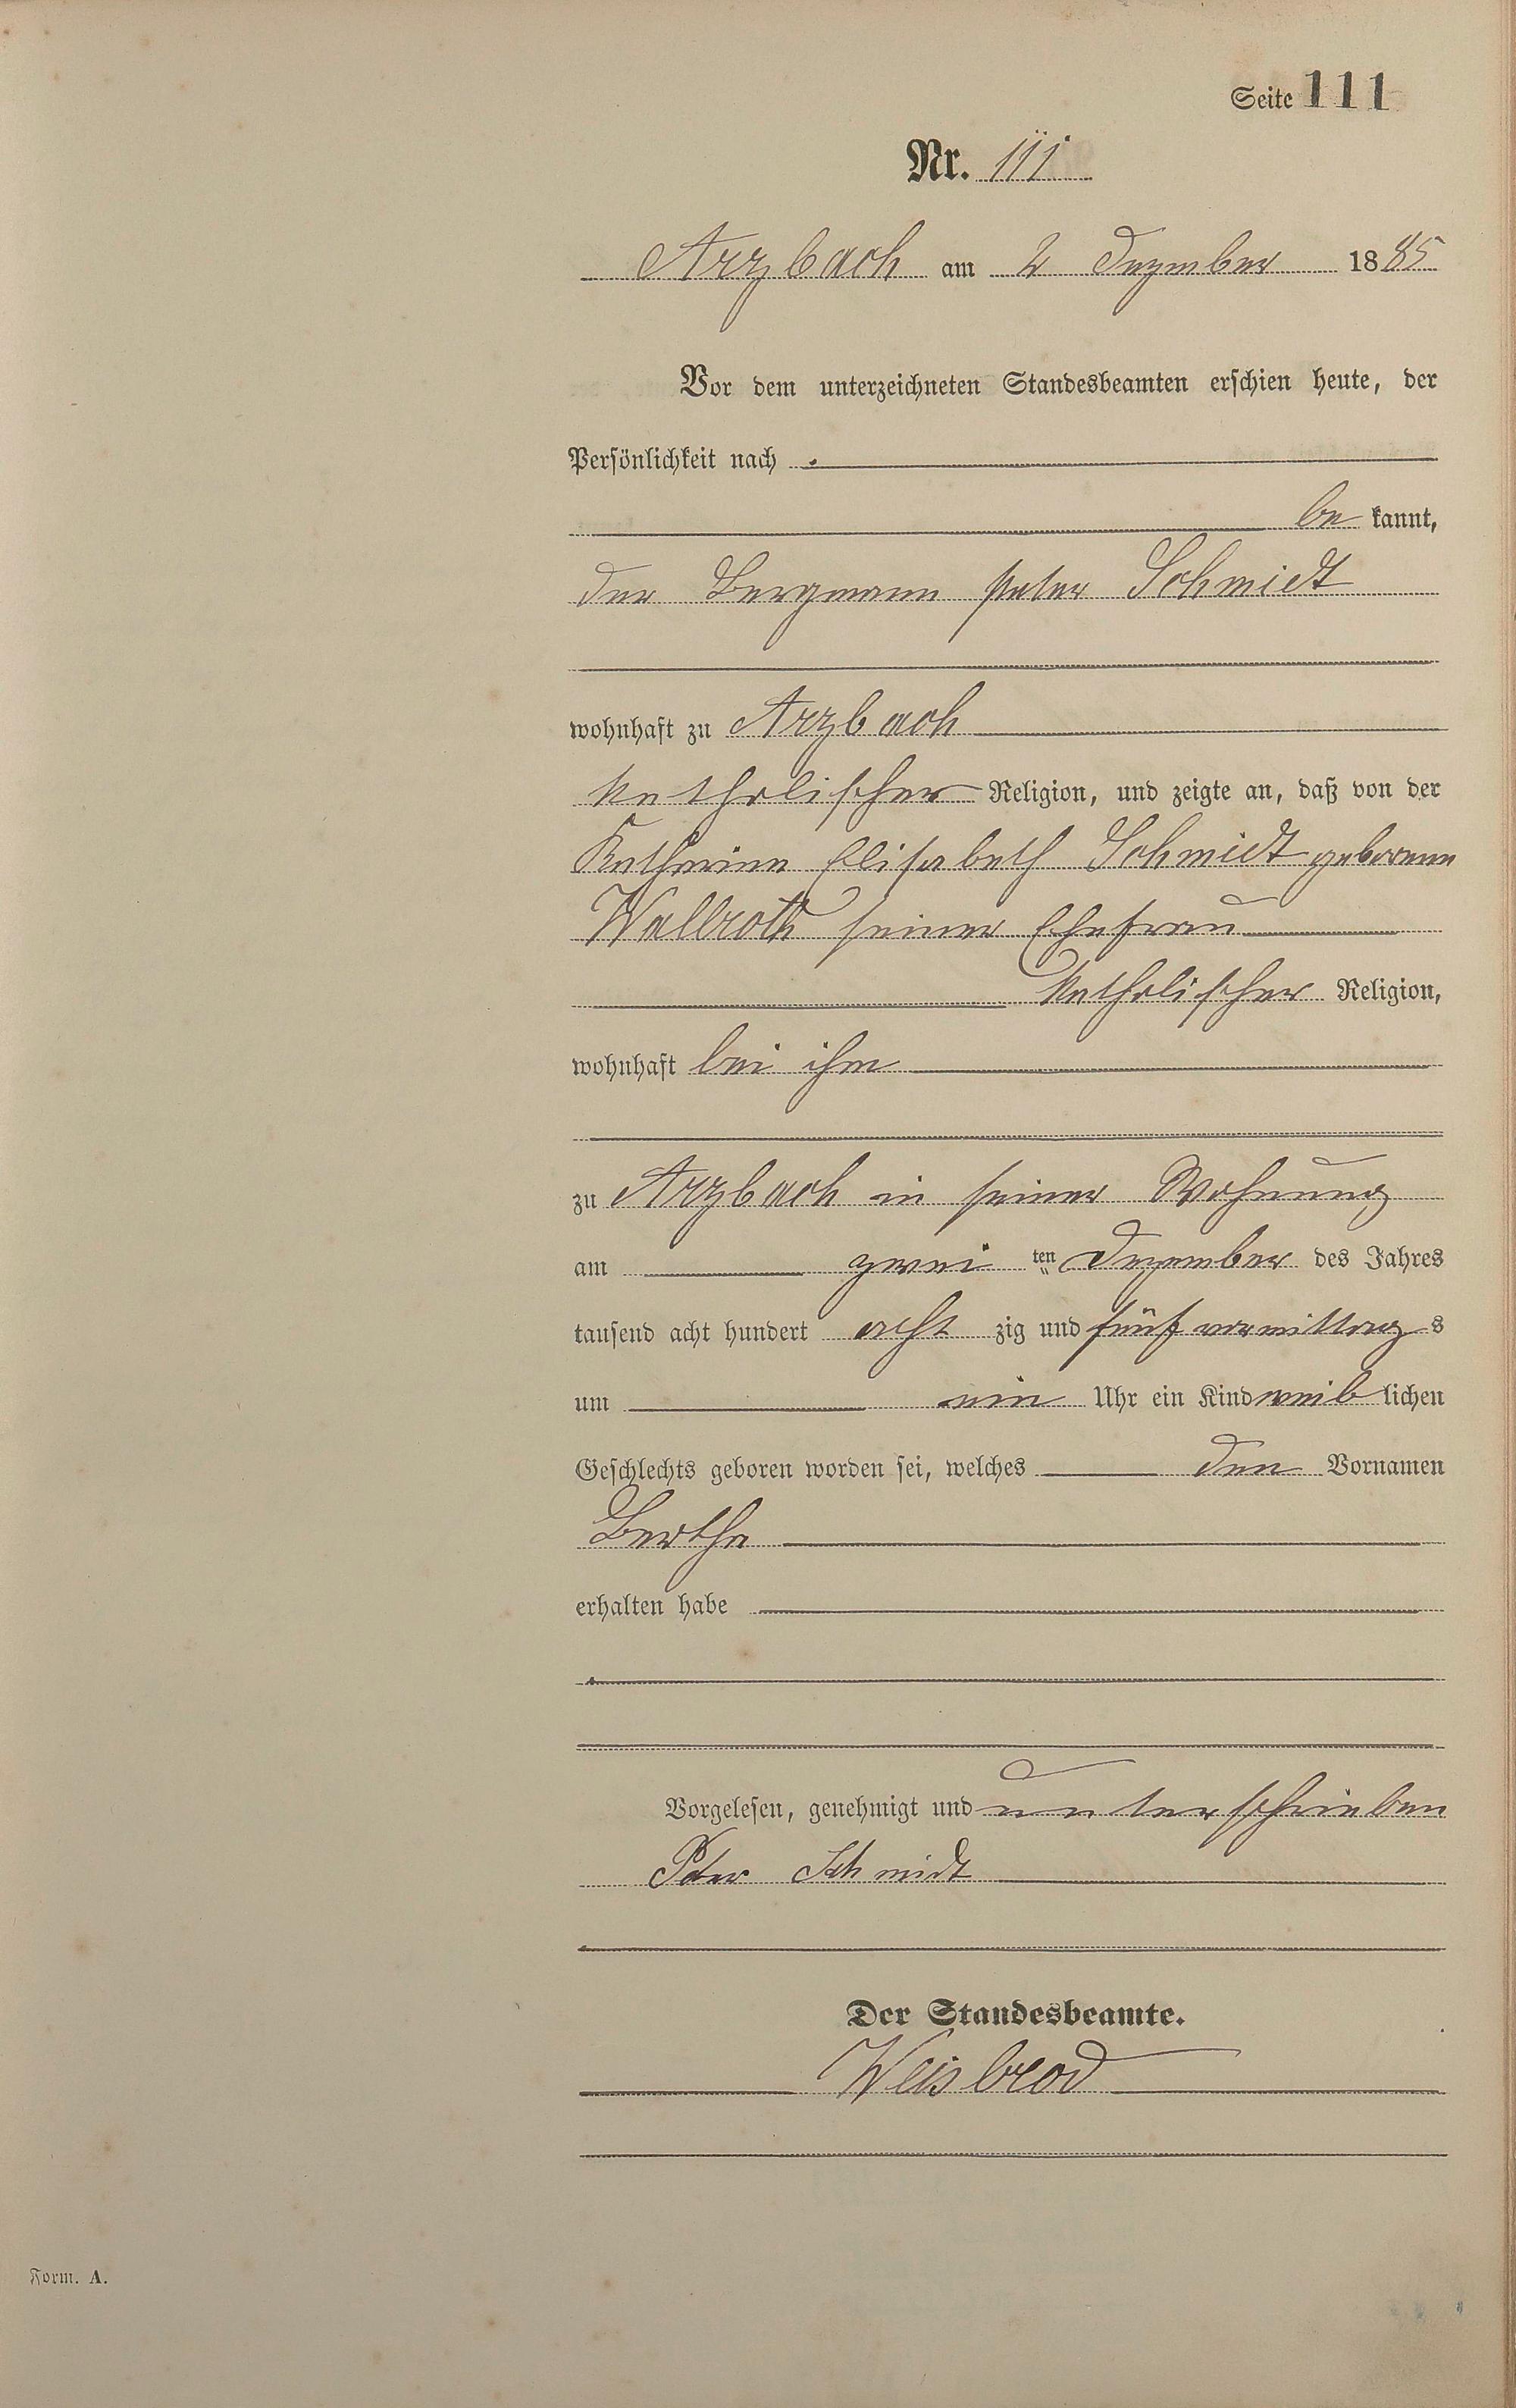 Seite 111
Nr. 111
Arzbach am 2 Dezember 1885
Vor dem unterzeichneten Standesbeamten erschien heute, der
Persönlichkeit nach
be kannt,
der Bergmann Peter Schmidt
wohnhaft zu Arzbach
katholischer Religion, und zeigte an, daß von der
Katharina Elisabeth Schmidt geborenen
Wallroth seiner Ehefrau
katholischer Religion,
wohnhaft bei ihm
zu Arzbach in seiner Wohnung
am zwei ten Dezember des Jahres
tausend acht hundert acht zig und fünf vormittags
um ein Uhr ein Kind weiblichen
Geschlechts geboren worden sei, welches den Vornamen
Bertha
erhalten habe
Vorgelesen, genehmigt und unterschrieben
Peter Schmidt
Der Standesbeamte.
Weisbrod
Form. A.